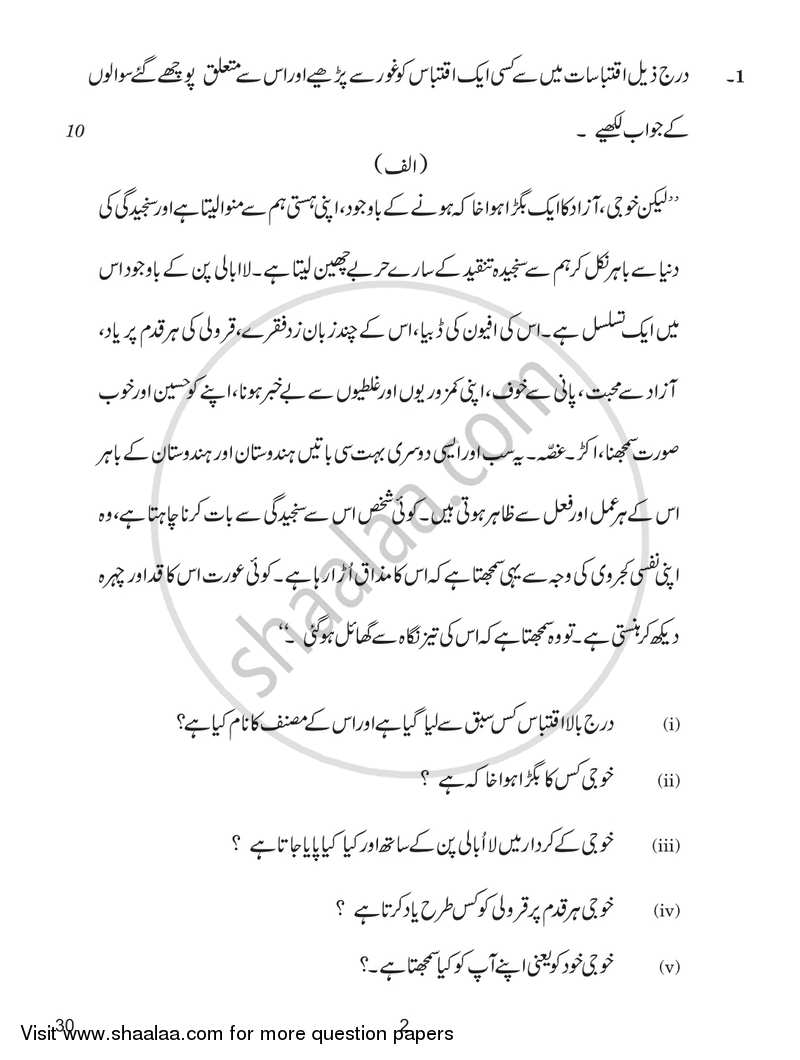 1۔ درج ذیل اقتباسات میں سے کسی ایک اقتباس کو غور سے پڑھیے اور اس سے متعلق پوچھے گئے سوالوں
کے جواب لکھیے ۔ 10
(الف)
’’لیکن خوجی، آزاد کا ایک بگڑا ہوا خاکہ ہونے کے باوجود، اپنی ہستی ہم سے منوا لیتا ہے اور سنجیدگی کی
دنیا سے باہر نکل کر ہم سے سنجیدہ تنقید کے سارے حربے چھین لیتا ہے۔ لا ابالی پن کے باوجود اس
میں ایک تسلسل ہے۔ اس کی افیون کی ڈبیا، اس کے چند زبان زد فقرے، قرولی کی ہر قدم پر یاد،
آزاد سے محبت، پانی سے خوف، اپنی کمزوریوں اور غلطیوں سے بے خبر ہونا، اپنے کو حسین اور خوب
صورت سمجھنا، اکڑ۔ غصّہ۔ یہ سب اور ایسی دوسری بہت سی باتیں ہندوستان اور ہندوستان کے باہر
اس کے ہر عمل اور فعل سے ظاہر ہوتی ہیں۔ کوئی شخص اس سے سنجیدگی سے بات کرنا چاہتا ہے، وہ
اپنی نفسی کجروی کی وجہ سے یہی سمجھتا ہے کہ اس کا مذاق اُڑا رہا ہے۔ کوئی عورت اس کا قد اور چہرہ
دیکھ کر ہنستی ہے۔ تو وہ سمجھتا ہے کہ اس کی تیز نگاہ سے گھائل ہو گئی ۔‘‘
(i) درج بالا اقتباس کس سبق سے لیا گیا ہے اور اس کے مصنف کا نام کیا ہے؟
(ii) خوجی کس کا بگڑا ہوا خاکہ ہے ؟
(iii) خوجی کے کردار میں لا اُبالی پن کے ساتھ اور کیا کیا پایا جاتا ہے ؟
(iv) خوجی ہر قدم پر قرولی کو کس طرح یاد کرتا ہے ؟
(v) خوجی خود کو یعنی اپنے آپ کو کیا سمجھتا ہے۔؟
30 2
Visit www.shaalaa.com for more question papers
shaalaa.com